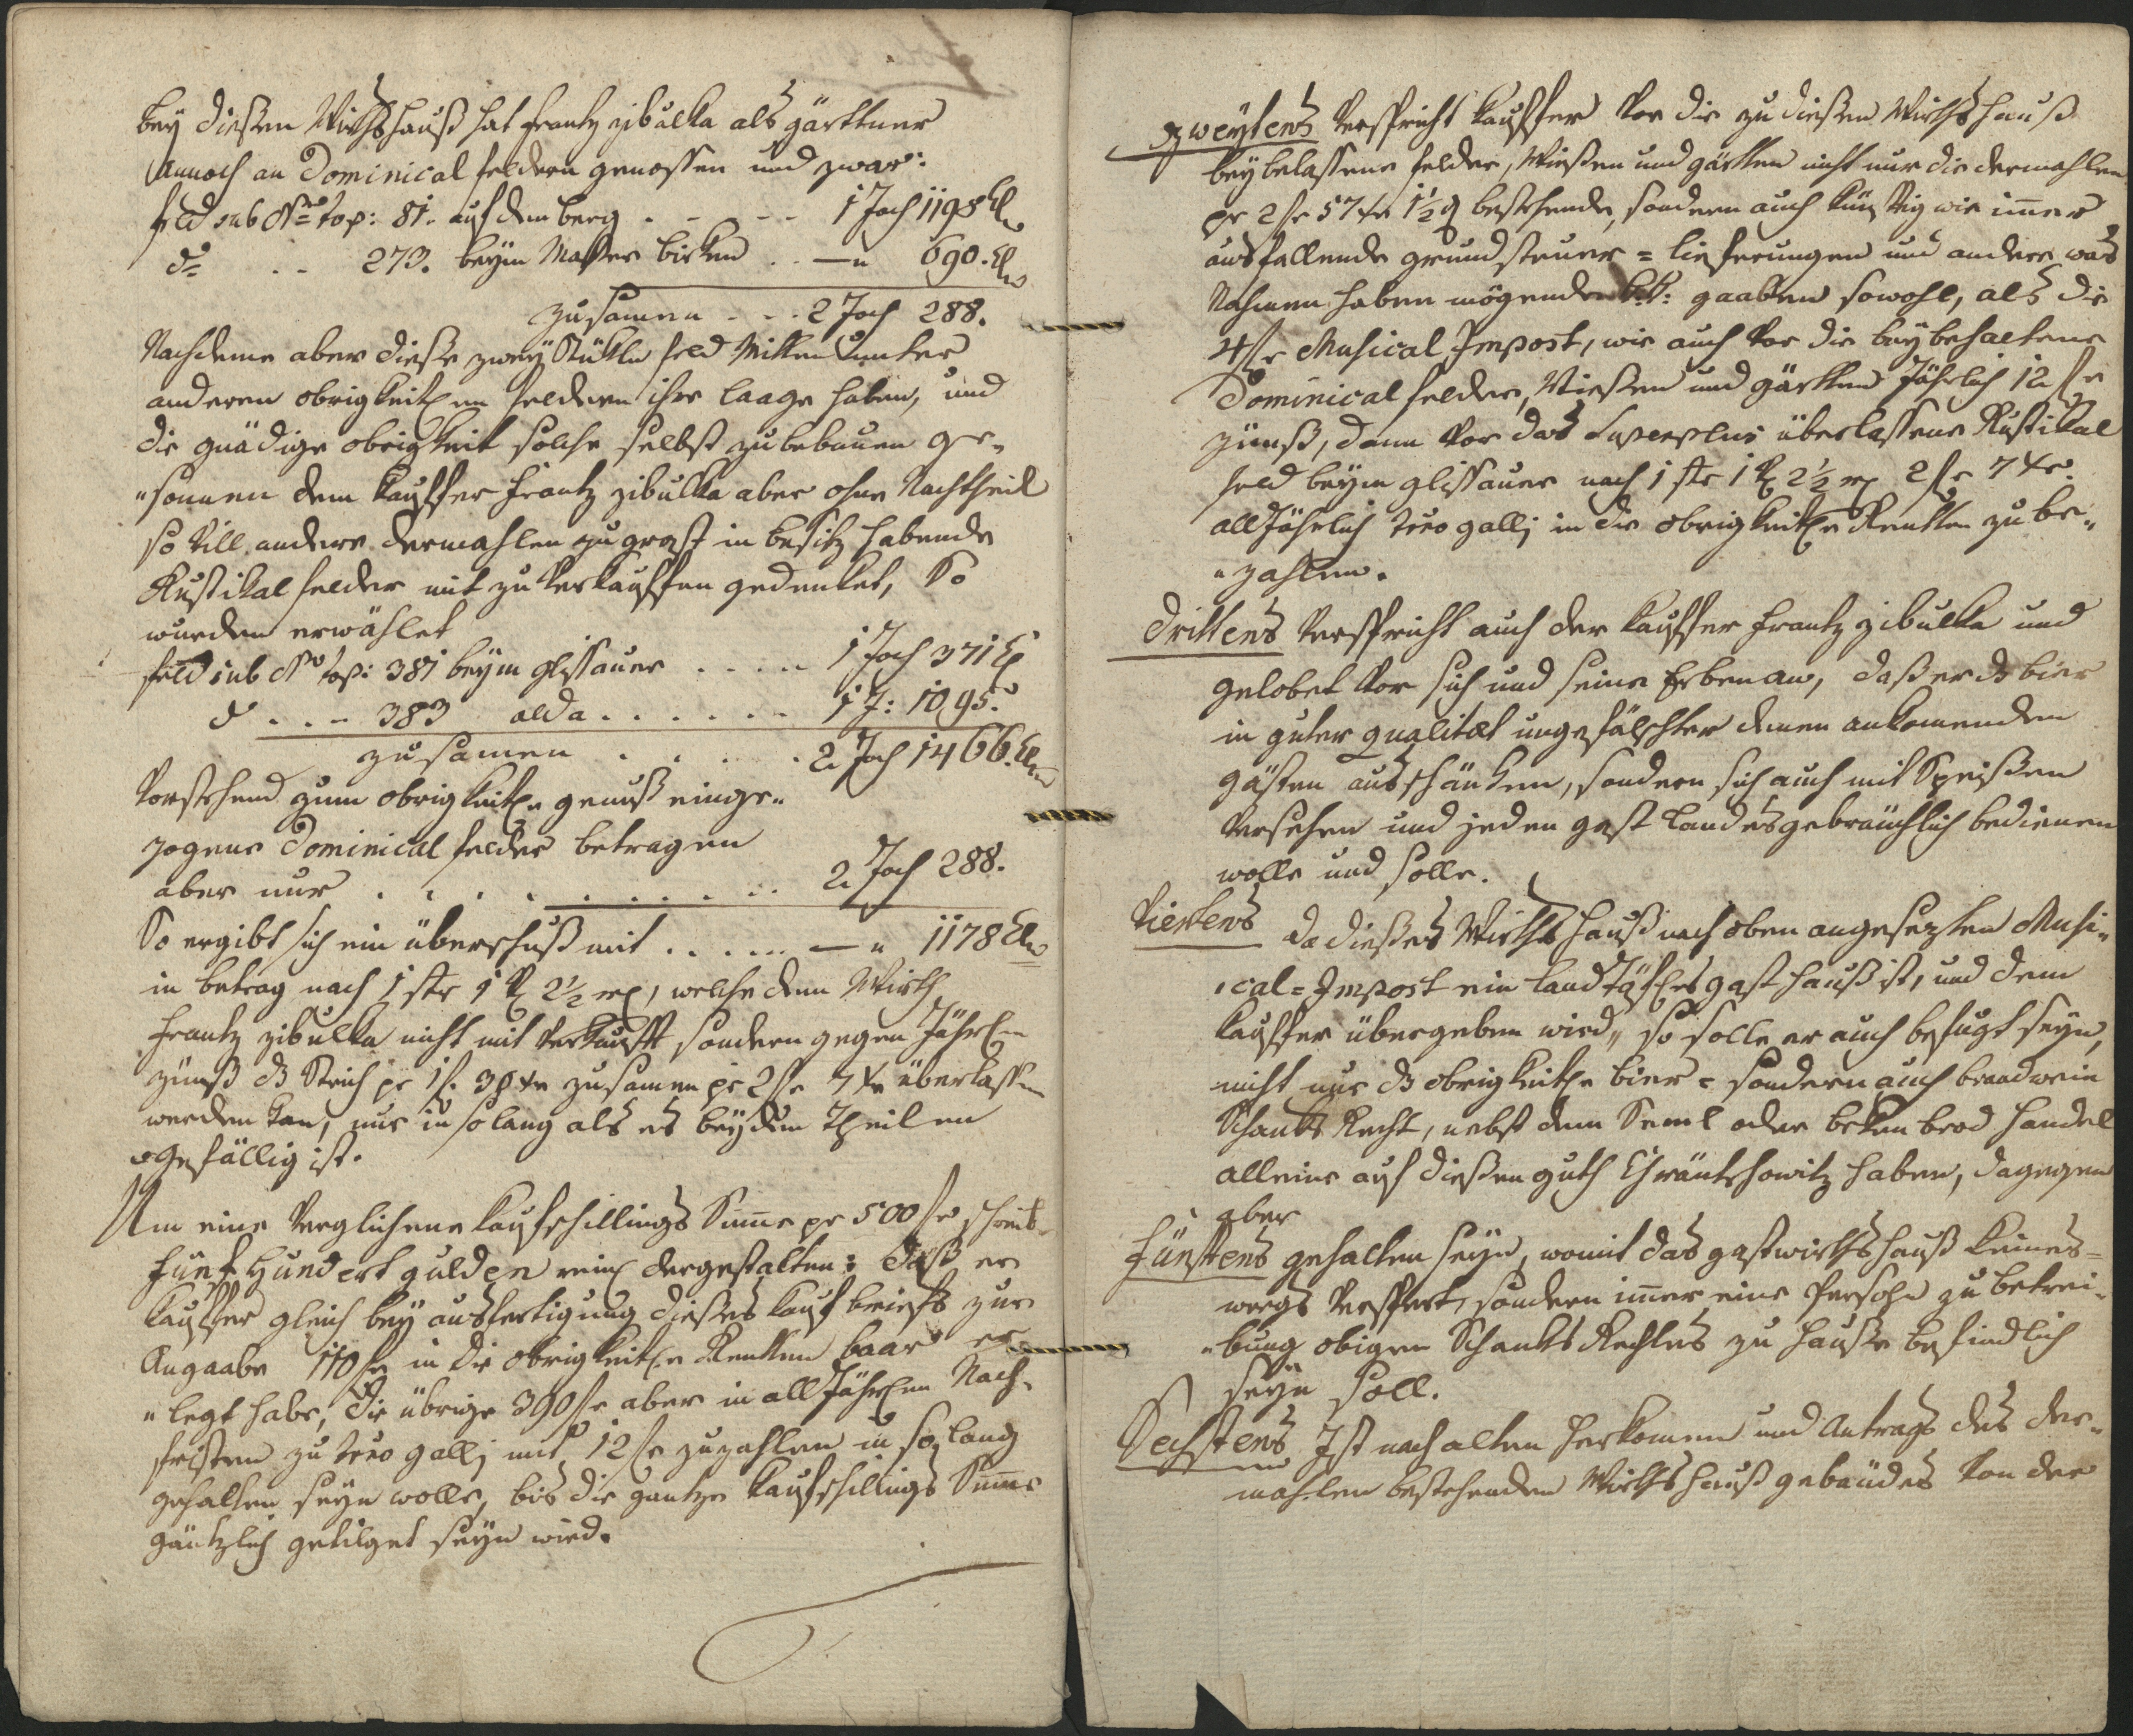 bey dießen Wirthshauß hat Frantz zibulka als gärttner
Annoch an Dominical feldern genossen und zwar:
feld sub Nro top: 81. auf dem berg . - - - 1 Joch 1198 Kl
do . . 273. beym Wasser birken . . — " 690. Kl
zusamen - - - 2 Joch 288.
Nachdeme aber dieße zwey Stükln feld Mitten unter
anderen obrigkeitlen feldern ihre laage haben, und
die gnädige obrigkeit solche selbst zu bebauen ge-
"sonnen dem Kauffer Frantz zibulka aber ohne Nachtheil
so vill andere dermahlen zu grost in besitz habende
Rustikal felder mit zu verkauffen gedenket, So
wurden erwählet
feld sub No top: 381 beym glissauer . . . . - 1 Joch 371 Kl
do . . - 383 alda . . . . . . - 1 J: 1095.
zusamen . . . . . 2 Joch 1466. Kl
Vorstehend zum obrigkeitlen genuß einge-
zogene Dominical felder betragen
aber nur . . . . . . . . . . 2 Joch 288.
So ergibt sich ein überschuß mit . . . . . . — " 1178 Kl
in betrag nach 1 str 1 V 2½ ml, welche dem Wirth
Frantz zibulka nicht mit verkaufft sondern gegen Jährl
zinnß ds Strich pr 1 f. 38 xr zusamen pr 2 fr 7 xr überlassen
werden kan, nur in so lang als es beyden Theilen
gefällig ist.
Um eine Verglichene Kaufschillings Suma pr 500 fr schreib
fünf Hundert gulden reinl dergestalten: daß er
Kauffer gleich bey ausfertigung dießes Kauf briefs zur
Angaabe 110 fr in die obrigkeitle Rentten baar er-
"legt habe, die übrige 390 fr aber in all Jährlen Nach-
fristen zu tero galli mit 12 fr zuzahlen in so lang
gehalten seyn wolle, bis die gantze Kaufschillings Suma
gäntzlich getilget seyn wird.
zweytens Verspricht Kauffer Vor die zu dießen Wirthshauß
beybelassene felder, Wießen und gärtten nicht nur die dermahlen
pr 2 fr 57 xr 1½ d bestehende, sondern auch künftig wie imer
ausfallende grundsteuer = lieferungen und andere was
Nahmen haben mögende k.k: gaaben sowohl, als die
4 fr Musical Impost, wie auch Vor die beybehaltene
Dominical felder, Wießen und gärtten Jährlich 12 fr
zinnß, dann Vor das Superplus überlassene Rustikal
feld beym glissauer nach 1 str 1 V 2½ ml 2 fr 7 xr
all Jährlich tero galli in die obrigkeitle Rentten zu be-
"zahlen.
Drittens Verspricht auch der Kauffer Frantz zibulka und
gelobet Vor sich und seine Erben an, daß er ds bier
in guter qualitæt ungefälschter denen ankomenden
gästen ausschänken, sondern sich auch mit Speißen
Versehen und jeden gast Landesgebräuchlich bedienen
wolle und solle.
Viertens da dießes Wirths hauß nach oben angesezten Musi-
"cal = Impost ein Landtäfles gast hauß ist, und dem
Kauffer übergeben wird, so solle er auch befugt seyn,
nicht nur ds obrigkeitle bier = sondern auch brandwein
Schanks Recht, nebst dem Seml oder beken brod handel
alleine auf dießen guth Chräntschowitz haben, dagegen
aber
Fünftens gehalten seyn, womit das gastwirthshauß keines-
weegs Versperrt, sondern imer eine Persohn zu betrei-
"bung obigen Schanks Rechtes zu hauße befindlich
seyn soll.
Sechstens Ist nach alten herkomen und Antrags des der-
mahlen bestehenden Wirthshauß gebäudes Von der